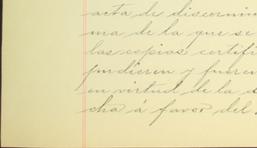 acta de discernim
una de la que se
las copias certifi
pudieren y fueren
en virtud de la s
cha á favor del